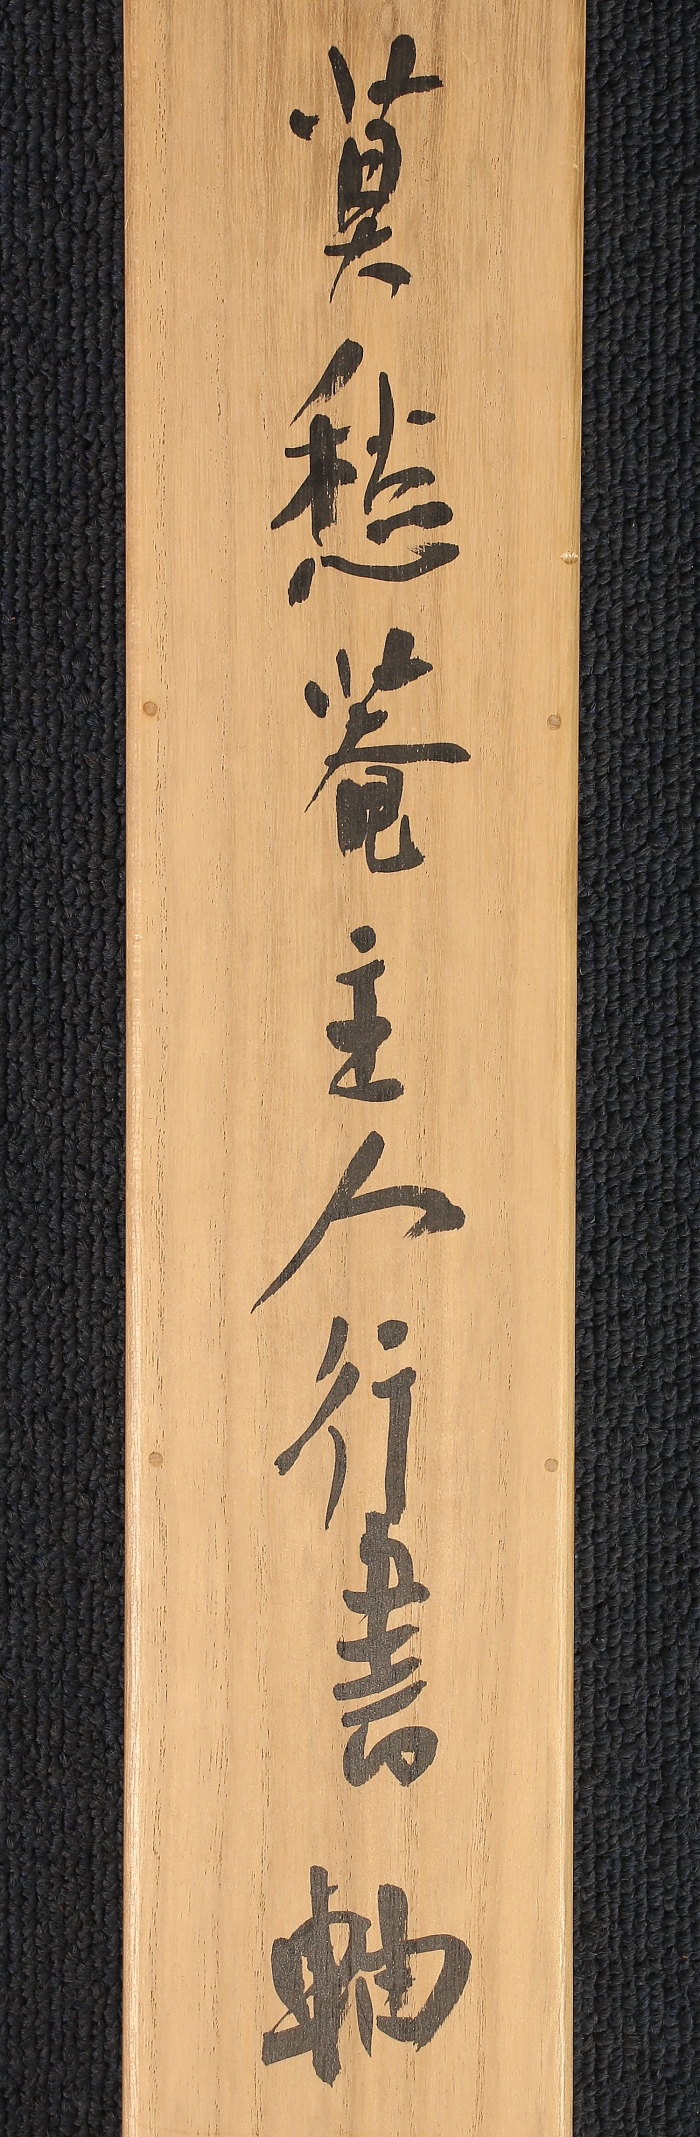 莫愁菴主人行書軸